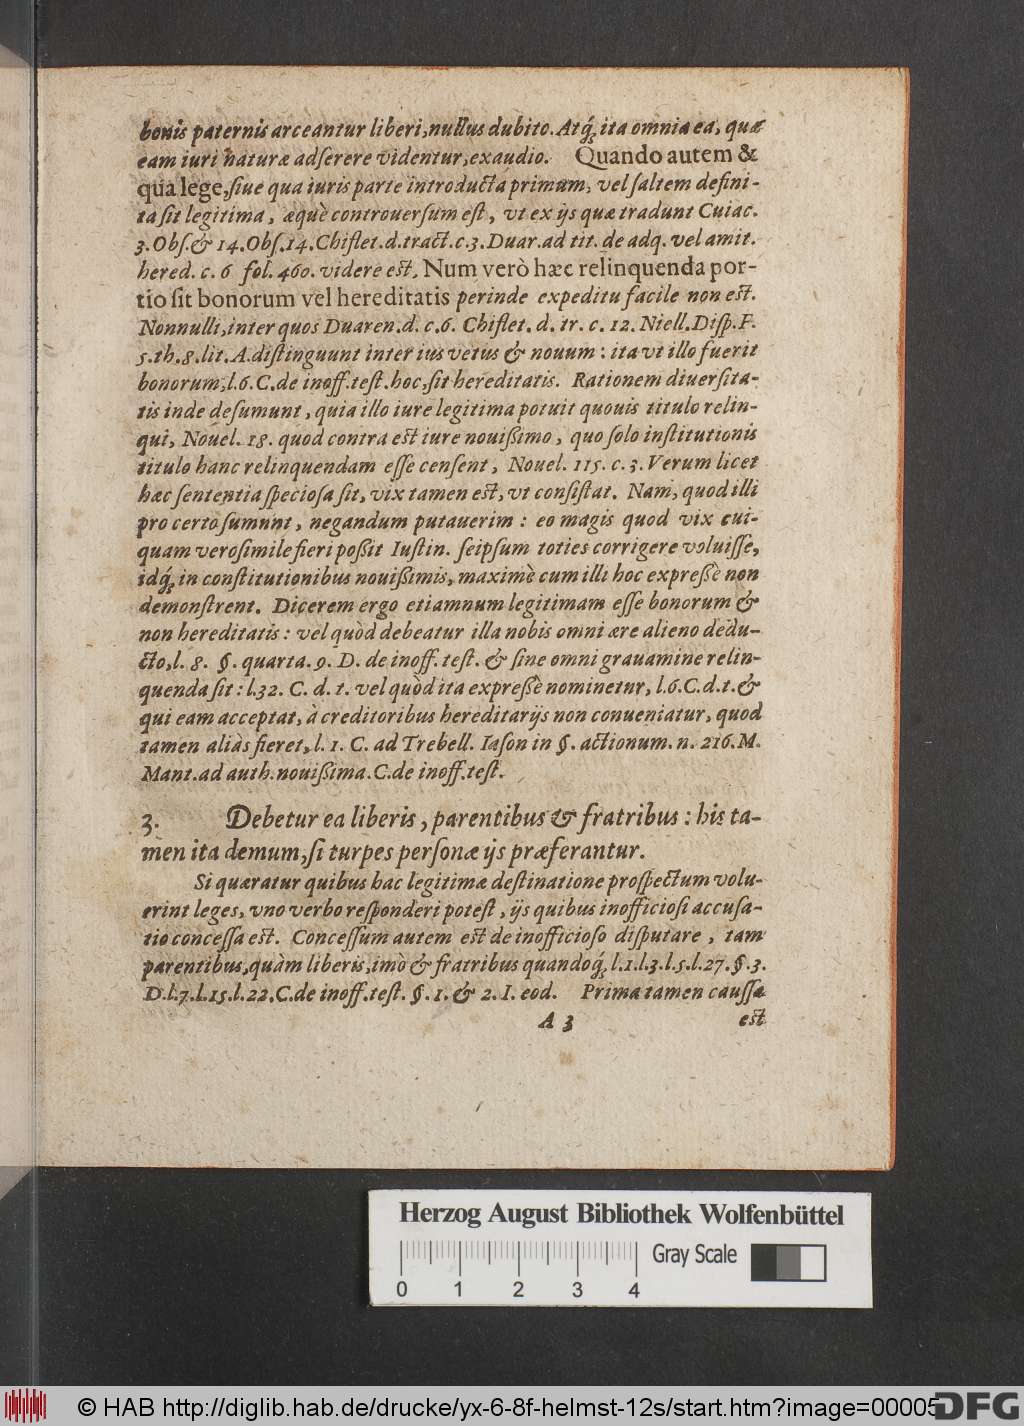 bonis paternis arceantur liberi, nullus dubito. Atq́; ita omnia ea, quæ
eam iuri naturæ adſerere videntur, exaudio. Quando autem &
qua lege, ſiue qua iuris parte introducta primum, vel ſaltem defini-
ta ſit legitima, æquè controuerſum eſt, vt ex ijs quæ tradunt Cuiac.
3. Obſ. & 14. Obſ. 14. Chiflet. d. tract. c. 3. Duar. ad tit. de adq. vel amit.
hered. c. 6 fol. 460. videre eſt. Num verò hæc relinquenda por-
tio ſit bonorum vel hereditatis perinde expeditu facile non eſt.
Nonnulli, inter quos Duaren. d. c. 6. Chiflet. d. tr. c. 12. Niell. Diſp. F.
5. th. 8. lit. A. diſtinguunt inter ius vetus & nouum: ita vt illo fuerit
bonorum, l. 6. C. de inoff. teſt. hoc, ſit hereditatis. Rationem diuerſita-
tis inde deſumunt, quia illo iure legitima potuit quouis titulo relin-
qui, Nouel. 18. quod contra eſt iure nouißimo, quo ſolo inſtitutionis
titulo hanc relinquendam eſſe cenſent, Nouel. 115. c. 3. Verum licet
hæc ſententia ſpecioſa ſit, vix tamen eſt, vt conſiſtat. Nam, quod illi
pro certo ſumunt, negandum putauerim: eo magis quod vix cui-
quam veroſimile fieri poßit Iuſtin. ſeipſum toties corrigere voluiſſe,
idq́; in conſtitutionibus nouißimis, maximè cum illi hoc expreſſè non
demonſtrent. Dicerem ergo etiamnum legitimam eſſe bonorum &
non hereditatis: vel quòd debeatur illa nobis omni ære alieno dedu-
cto, l. 8. §. quarta. 9. D. de inoff. teſt. & ſine omni grauamine relin-
quenda ſit: l. 32. C. d. t. vel quòd ita expreſſè nominetur, l. 6. C. d. t. &
qui eam acceptat, à creditoribus hereditarijs non conueniatur, quod
tamen aliàs fieret, l. 1. C. ad Trebell. Iaſon in §. actionum. n. 216. M.
Mant. ad auth. nouißima. C. de inoff. teſt.
3. Debetur ea liberis, parentibus & fratribus: his ta-
men ita demum, ſi turpes perſonæ ijs præferantur.
Si quæratur quibus hac legitimæ deſtinatione proſpectum volu-
erint leges, vno verbo reſponderi poteſt, ijs quibus inofficioſi accuſa-
tio conceſſa eſt. Conceſſum autem eſt de inofficioſo diſputare, tam
parentibus, quàm liberis, imò & fratribus quandoq́; l. 1. l. 3. l. 5. l. 27. §. 3.
D. l. 7. l. 15. l. 22. C. de inoff. teſt. §. 1. & 2. I. eod. Prima tamen cauſſa
A 3 eſt
Herzog August Bibliothek Wolfenbüttel
Gray Scale
0 1 2 3 4
© HAB http://diglib.hab.de/drucke/yx-6-8f-helmst-12s/start.htm?image=00005
DFG